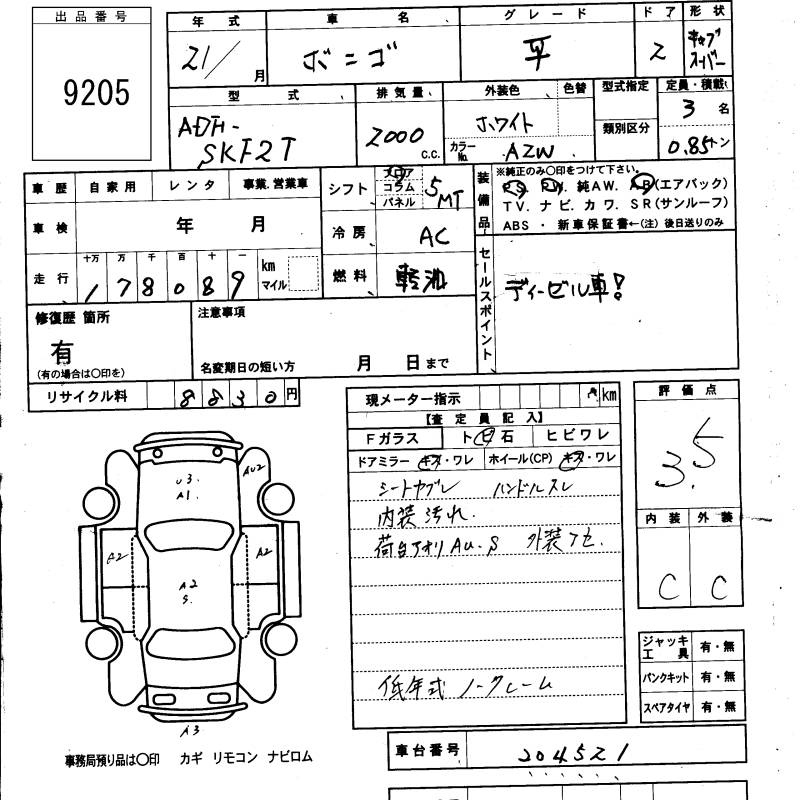 出品番号
9205
年式 車名 グレード ドア 形状
21/ 月 ボンゴ 平 2 キャブ スーパー
型式 排気量 外装色 色替 型式指定 定員・積載
ADF-SKF2T 2000 C.C. ホワイト 類別区分 3 名
カラーNo. AZW 0.85トン
車歴 自家用 レンタ 事業.営業車
シフト フロア コラム パネル 5MT
装備品 ※純正のみ○印をつけて下さい。
PS. PW. 純AW. AB(エアバック)
TV. ナビ. カワ. SR(サンルーフ)
ABS ・ 新車保証書←(注)後日送りのみ
車検 年 月
冷房 AC
走行 十万 万 千 百 十 一
178089 km マイル
燃料 軽油
セールスポイント ディーゼル車!
修復歴 箇所
有
(有の場合は○印を)
注意事項
名変期日の短い方 月 日まで
リサイクル料 8830円
現メーター指示 km
【査定員記入】
Fガラス トビ石 ヒビワレ
ドアミラー キズ・ワレ ホイール(CP) キズ・ワレ
シートヤブレ ハンドルスレ
内装汚れ.
荷台アオリAu.S 外装フセ.
低年式 ノークレーム
評価点
3.5
内装 外装
C C
U3.
A1.
AU2
A2
A2
A2
S.
A3
ジャッキ工具 有・無
パンクキット 有・無
スペアタイヤ 有・無
事務局預り品は○印 カギ リモコン ナビロム
車台番号 204521